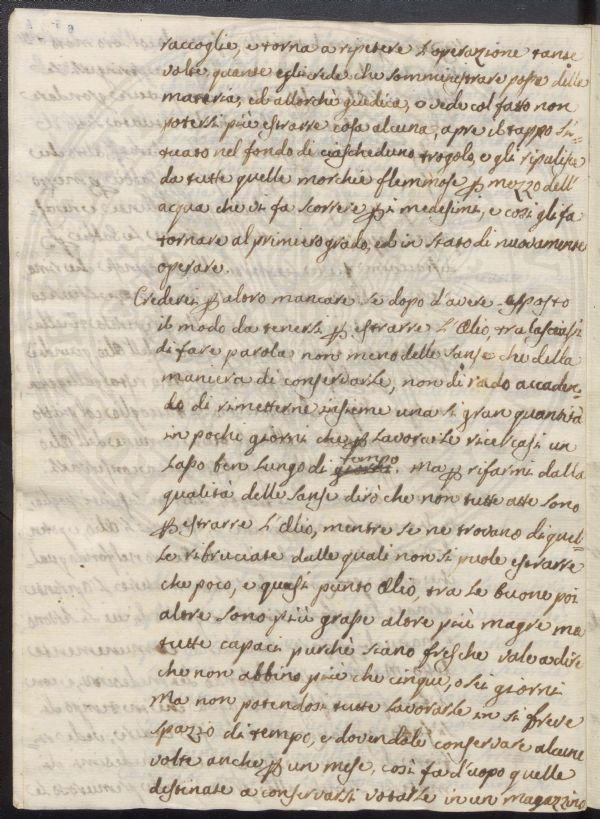 raccoglie, e torna a ripetere l'operazione tante
volte, quante egli vede che somministrare possa della
materia, ed allorchè giudica, o vede col fatto non
potersi più estrarre cosa alcuna, apre il tappo si=
tuato nel fondo di ciascheduno trogolo, e gli ripulisce
da tutte quelle morchie flemmose ꝑ mezzo dell'
acqua che vi fa scorrere ꝑ i medesimi, e così gli fa
tornare al primiero grado, ed in stato di nuovamente
operare.
Crederei ꝑ altro mancare se dopo d'avere esposto
il modo da tenersi ꝑ estrarre l'Olio, tralasciassi
di fare parola non meno delle sanse che della
maniera di conservarle, non di rado accaden=
do di rimetterne insieme una sì gran quantità
in pochi giorni che ꝑ lavorarle ricercasi un
lasso ben lungo di tempo. Ma ꝑ rifarmi dalla
qualità delle sanse dirò che non tutte atte sono
ꝑ estrarre l'Olio, mentre se ne trovano di quel=
le ribruciate dalle quali non si puole estrarre
che poco, e quasi punto Olio, tra le buone poi
altre sono più grasse altre più magre ma
tutte capaci purchè siano fresche vale a dire
che non abbino più che cinque, o sei giorni
Ma non potendosi tutte lavorarle in sì breve
spazzo di tempo, e dovendole conservare alcune
volte anche ꝑ un mese, così fa d'uopo quelle
destinate a conservarsi votarle in un magazzino